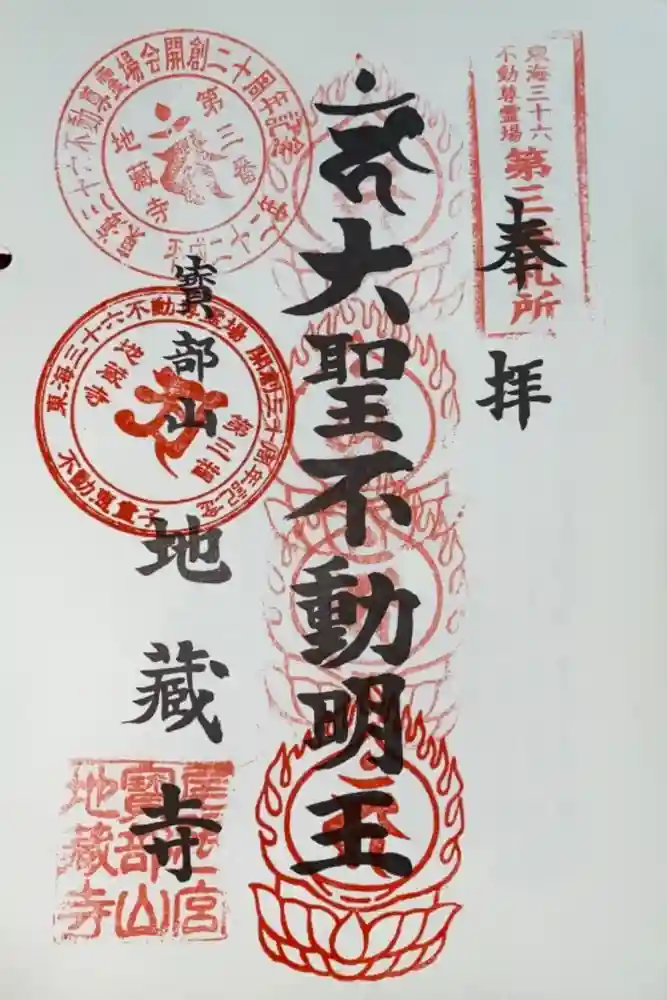 東海三十六
不動尊霊場
第三番札所
奉拝
大聖不動明王
寳部山
地蔵寺
東海三十六不動尊霊場会開創二十周年記念
第三番
地蔵寺
東海三十六不動尊霊場 開創三十周年記念
第三番
地蔵寺
不動
童子
寳部山
地蔵寺